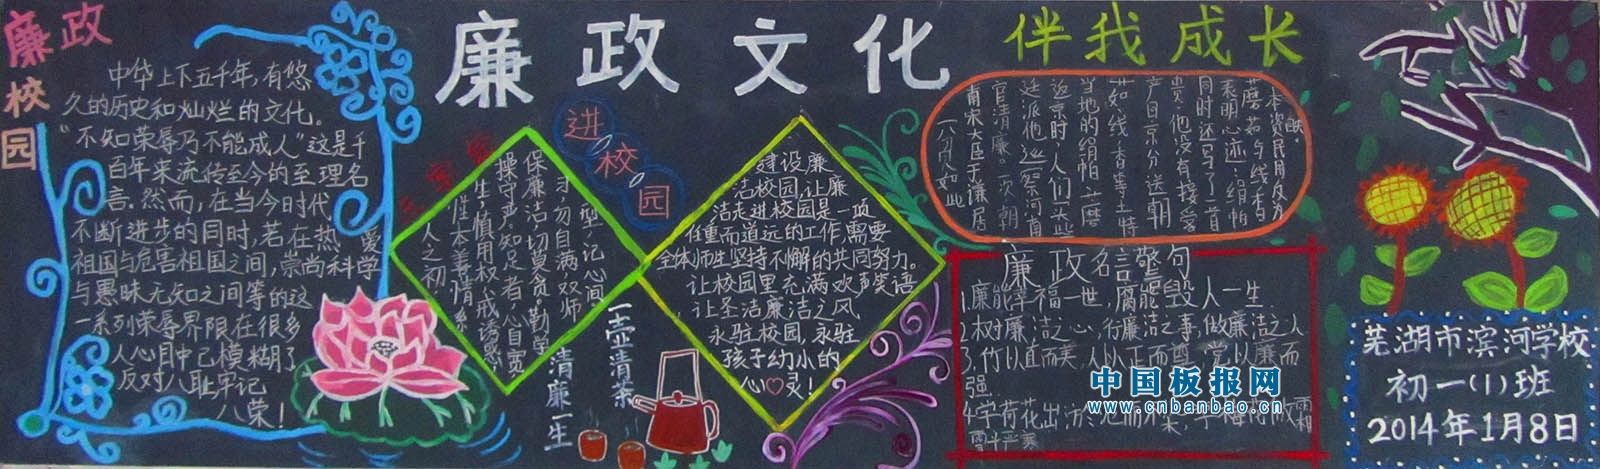 廉政
校
园
廉政文化
伴我成长
进校园
中华上下五千年,有悠
久的历史和灿烂的文化。
“不知荣辱乃不能成人”这是千
百年来流传至今的至理名
言。然而,在当今时代
不断进步的同时,若在热爱
祖国与危害祖国之间,崇尚科学
与愚昧无知之间等的这
一系列荣辱界限在很多
人心目中已模糊了
反对八耻牢记
八荣!
人之初
性本善情系
生慎用权戒诱惑
操守严知足者心自宽
保廉洁切莫贪勤学
习勿自满双师
型记心间
一壶清茶
清廉一生
建设廉
洁校园,让廉
洁走进校园是一项
任重而道远的工作,需要
全体师生坚持不懈的共同努力。
让校园里充满欢声笑语
让圣洁廉洁之风
永驻校园,永驻
孩子幼小的
心灵!
南宋大臣于谦居
官清廉。一次,朝
廷派他巡察河南
返京时,人们买些
当地的绢帕 蘑
菇 线香等土特
产回京分送朝
贵,他没有接受
同时还写了一首
表明心迹:绢帕
蘑菇与线香
本资民用反为
殃。
廉政名言警句
1.廉能幸福一世,腐能毁人一生.
2.树廉洁之心,行廉洁之事,做廉洁之人
3.竹以直而美,人以正而尊,党以廉而
强
中国板报网
www.cnbanbao.cn
芜湖市滨河学校
初一(1)班
2014年1月8日